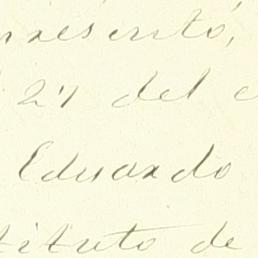 presentó,
27 del
Eduardo
tituto de